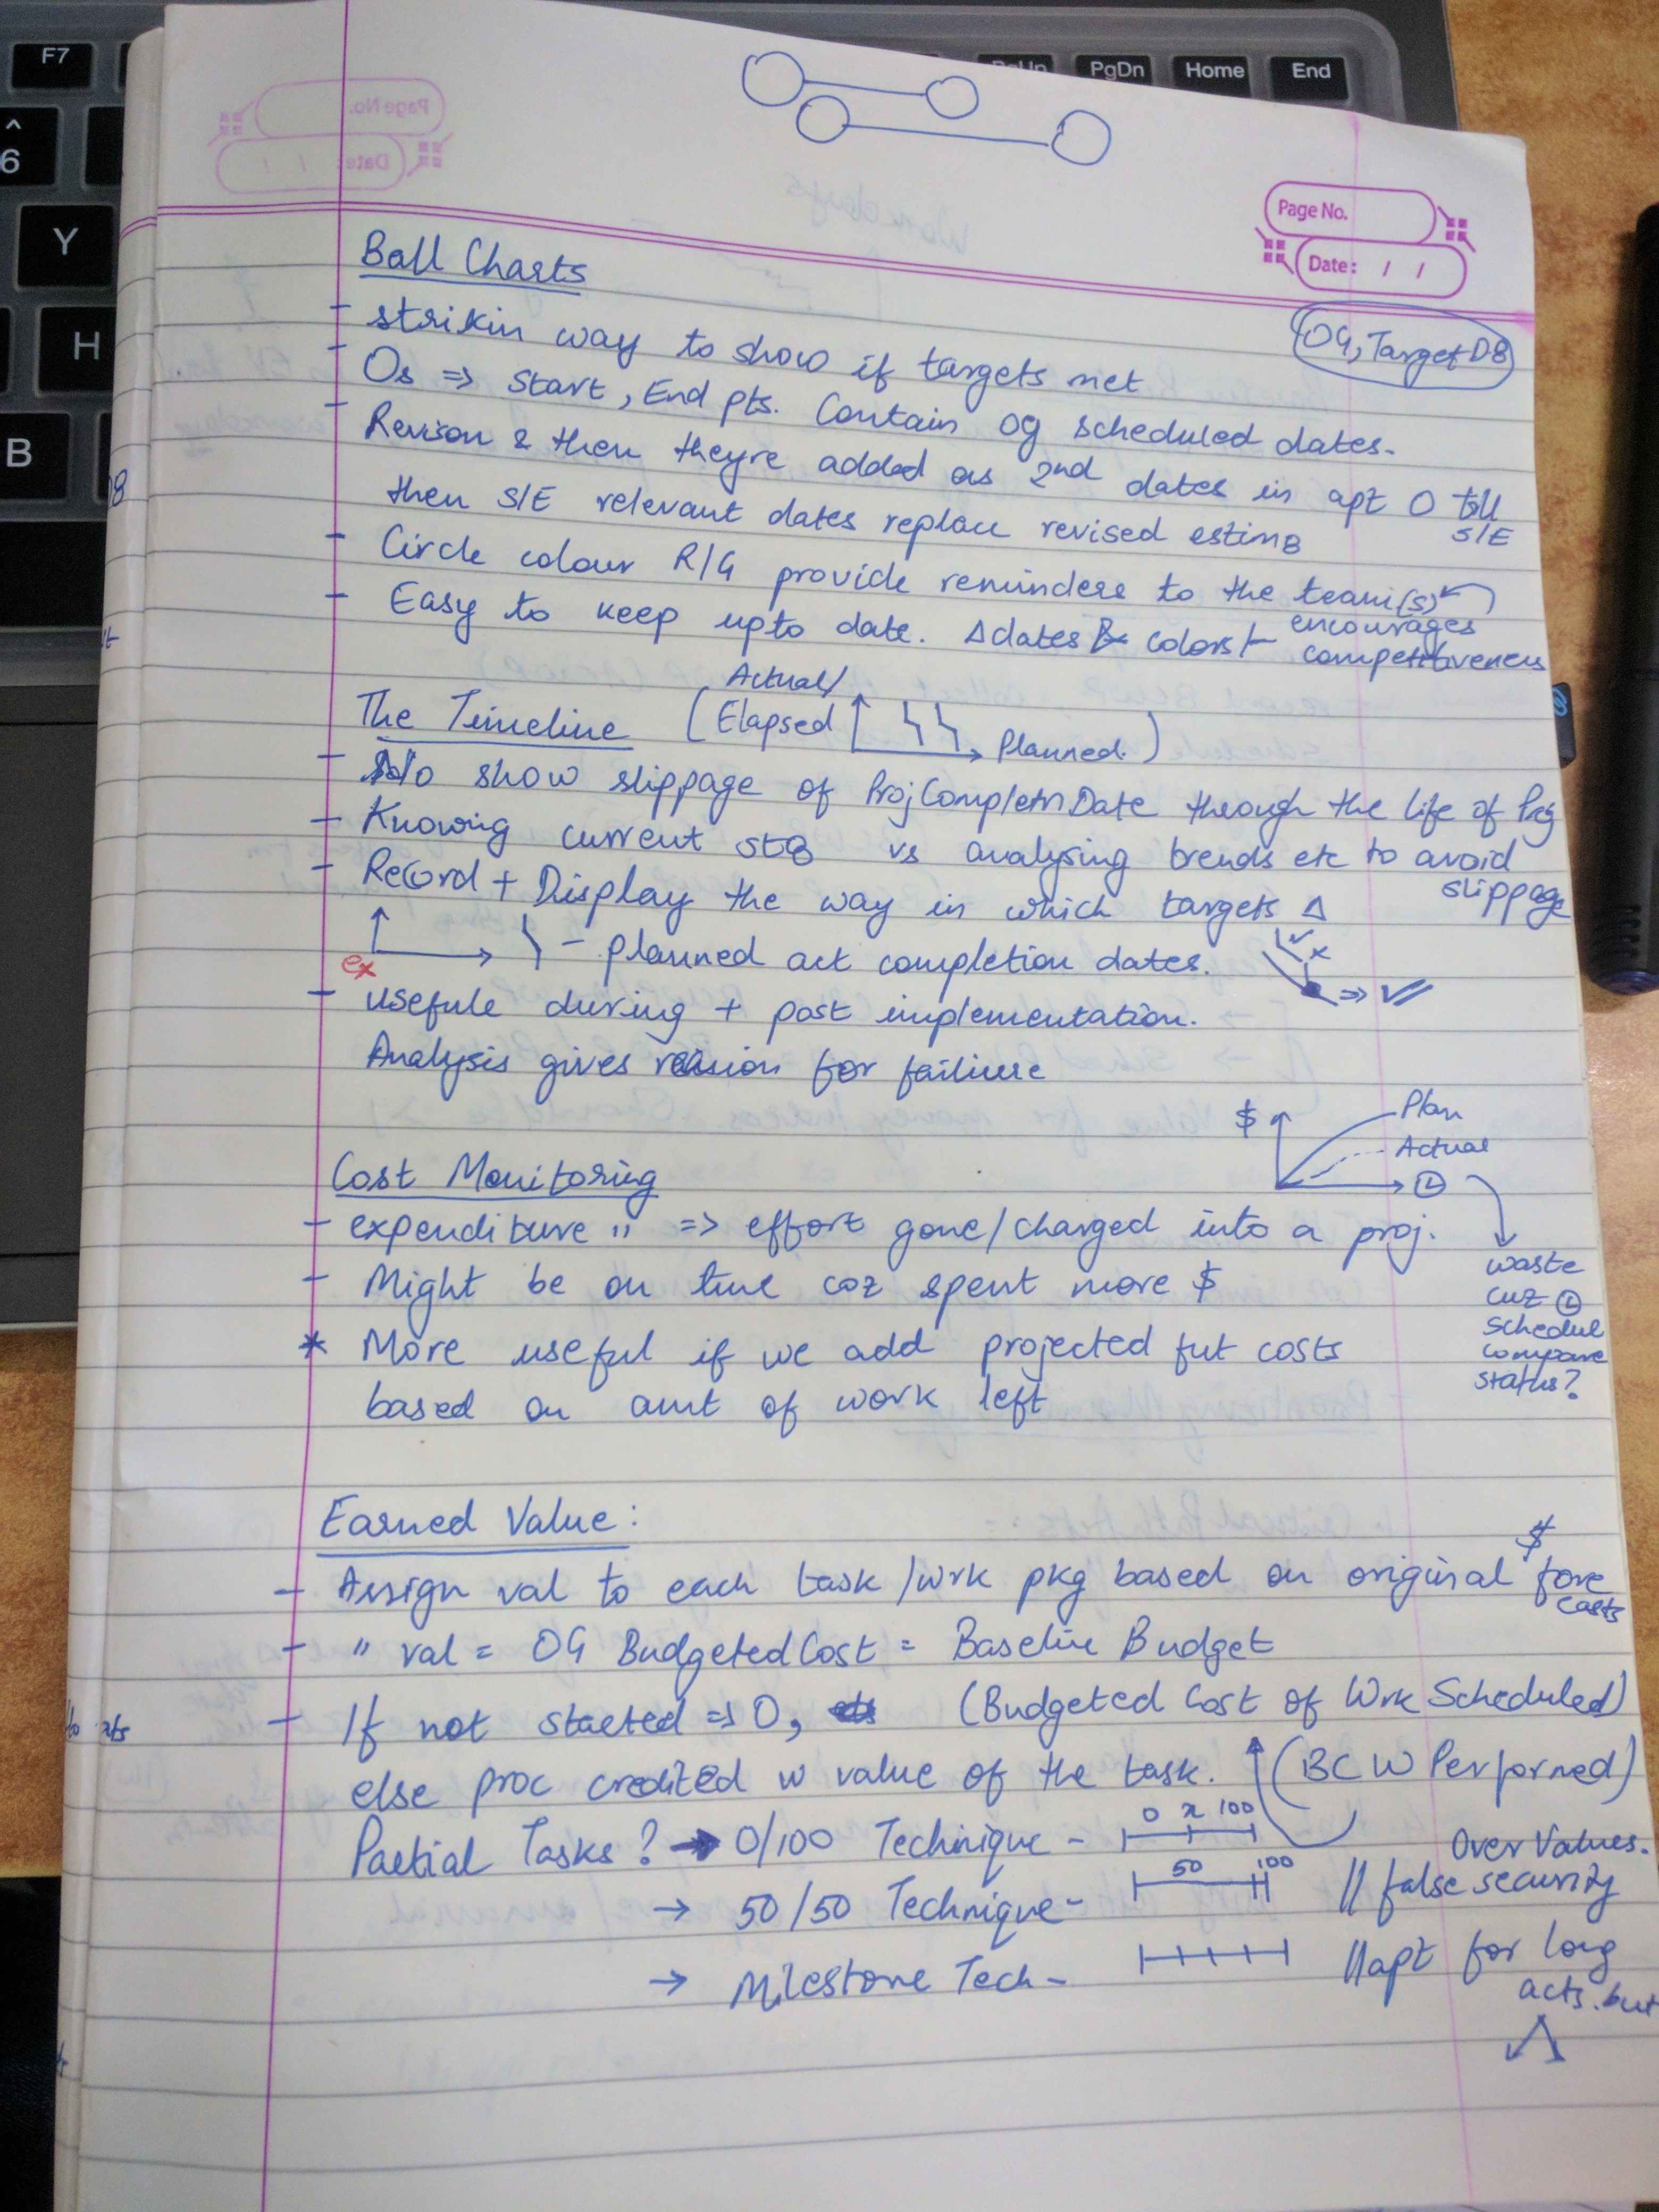 F7
PgUp
PgDn
Home
End
^
6
Y
H
B
Page No.
Date: / /
Page No.
Date: / /
Ball Charts
OG, Target D8
- strikin way to show if targets met
- Os => Start, End pts. Contain og scheduled dates.
- Revison & then theyre added as 2nd dates in apt O till S/E
then S/E relevant dates replace revised estim8
- Circle colour R/G provide reminders to the team(s)
- Easy to keep upto date. Δdates & colors
encourages
competitiveness
The Timeline (Actual/ Elapsed Planned.)
- show slippage of ProjCompletnDate through the life of Prj
- Knowing current st8 vs analysing trends etc to avoid slippage
- Record + Display the way in which targets Δ
ex
- planned act completion dates.
- usefule during + post implementation.
Analysis gives reasion for failiure
$
Plan
Actual
Cost Monitoring
- expenditure " => effort gone/charged into a proj.
- Might be on time coz spent more $
waste
cuz
schedul
compare
status?
* More useful if we add projected fut costs
based on amt of work left
Earned Value:
- Assign val to each task/wrk pkg based on original $ fore casts
- " val = OG BudgetedCost = Baseline Budget
(Budgeted Cost of Wrk Scheduled)
- If not started => 0,
else proc credited w value of the task. (BCW Performed)
Partial Tasks? → 0/100 Technique - 0 x 100
Over Values.
→ 50/50 Technique - 50 100 // false security
→ Milestone Tech - // apt for long
acts. but